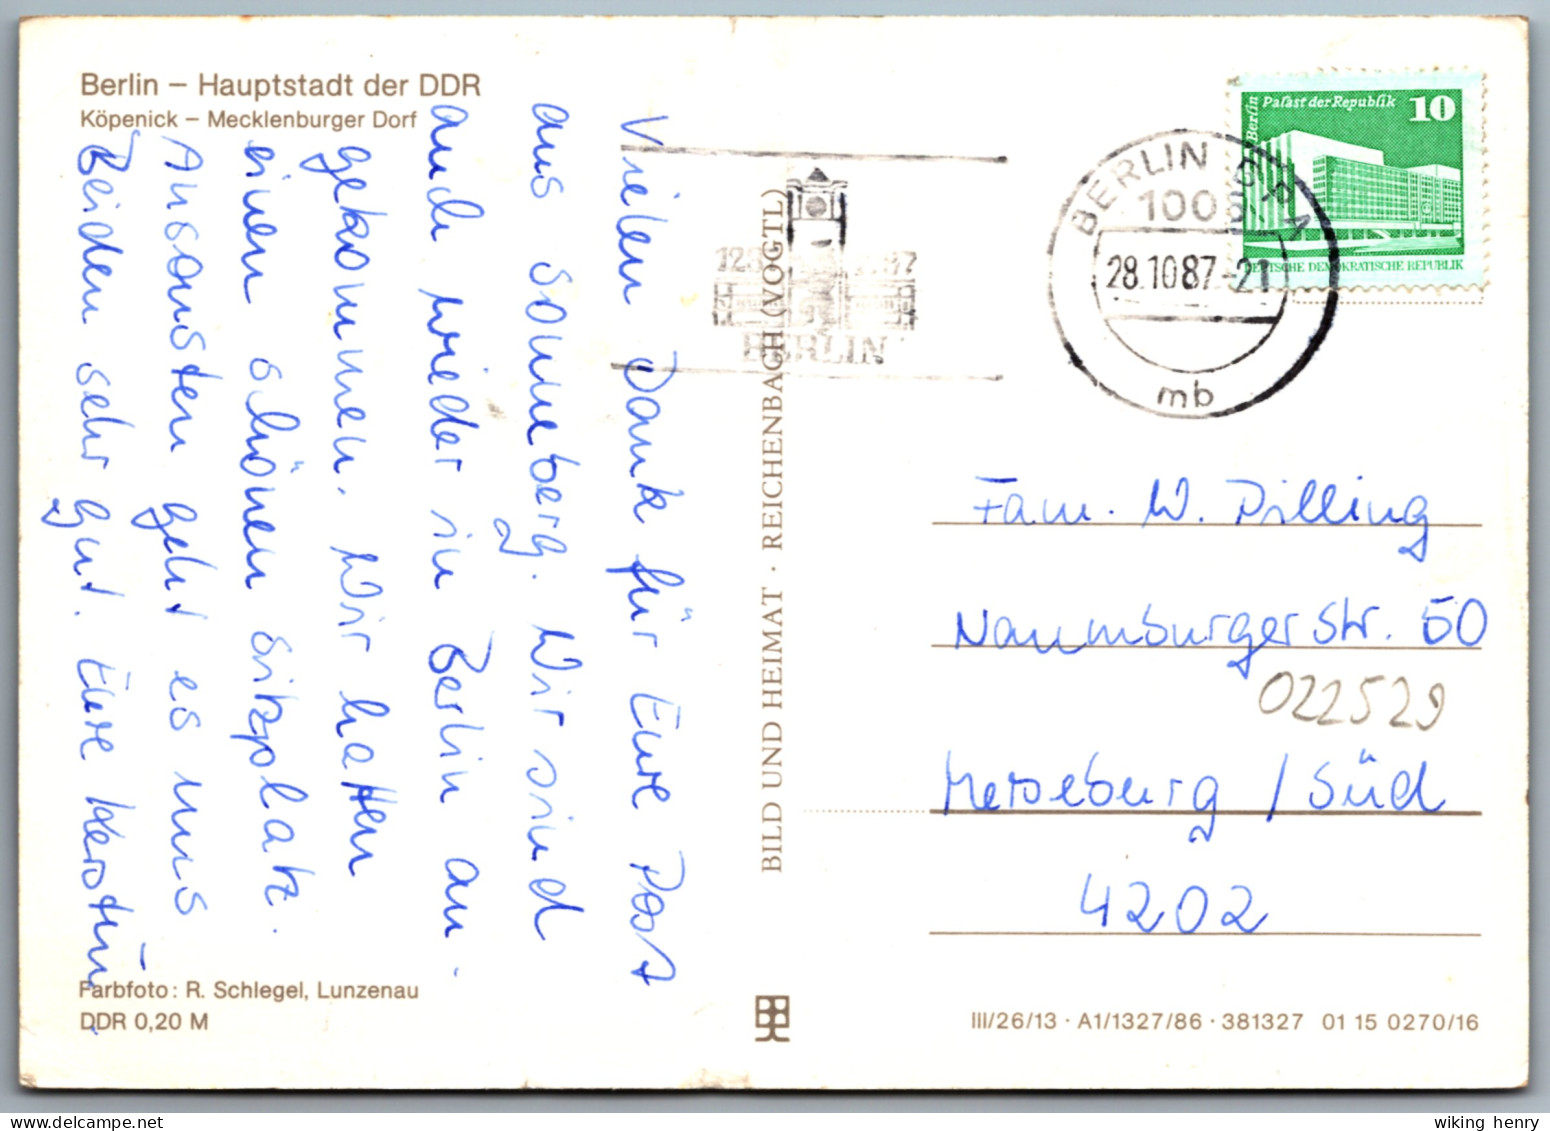 Berlin – Hauptstadt der DDR
Köpenick – Mecklenburger Dorf
Vielen Dank für Eure Post
aus Sonneberg. Wir sind
auch wieder in Berlin an-
gekommen. Wir hatten
einen schönen Sitzplatz.
Ansonsten geht es uns
Beiden sehr gut. Eure Kerstin
Farbfoto: R. Schlegel, Lunzenau
DDR 0,20 M
BILD UND HEIMAT · REICHENBACH (VOGTL)
BERLIN
BERLIN BPA
28.10.87-21
mb
Berlin Palast der Republik 10
DEUTSCHE DEMOKRATISCHE REPUBLIK
Fam. W. Dilling
Naumburger Str. 50
022529
Merseburg / Süd
4202
III/26/13 · A1/1327/86 · 381327 01 15 0270/16
wiking henry